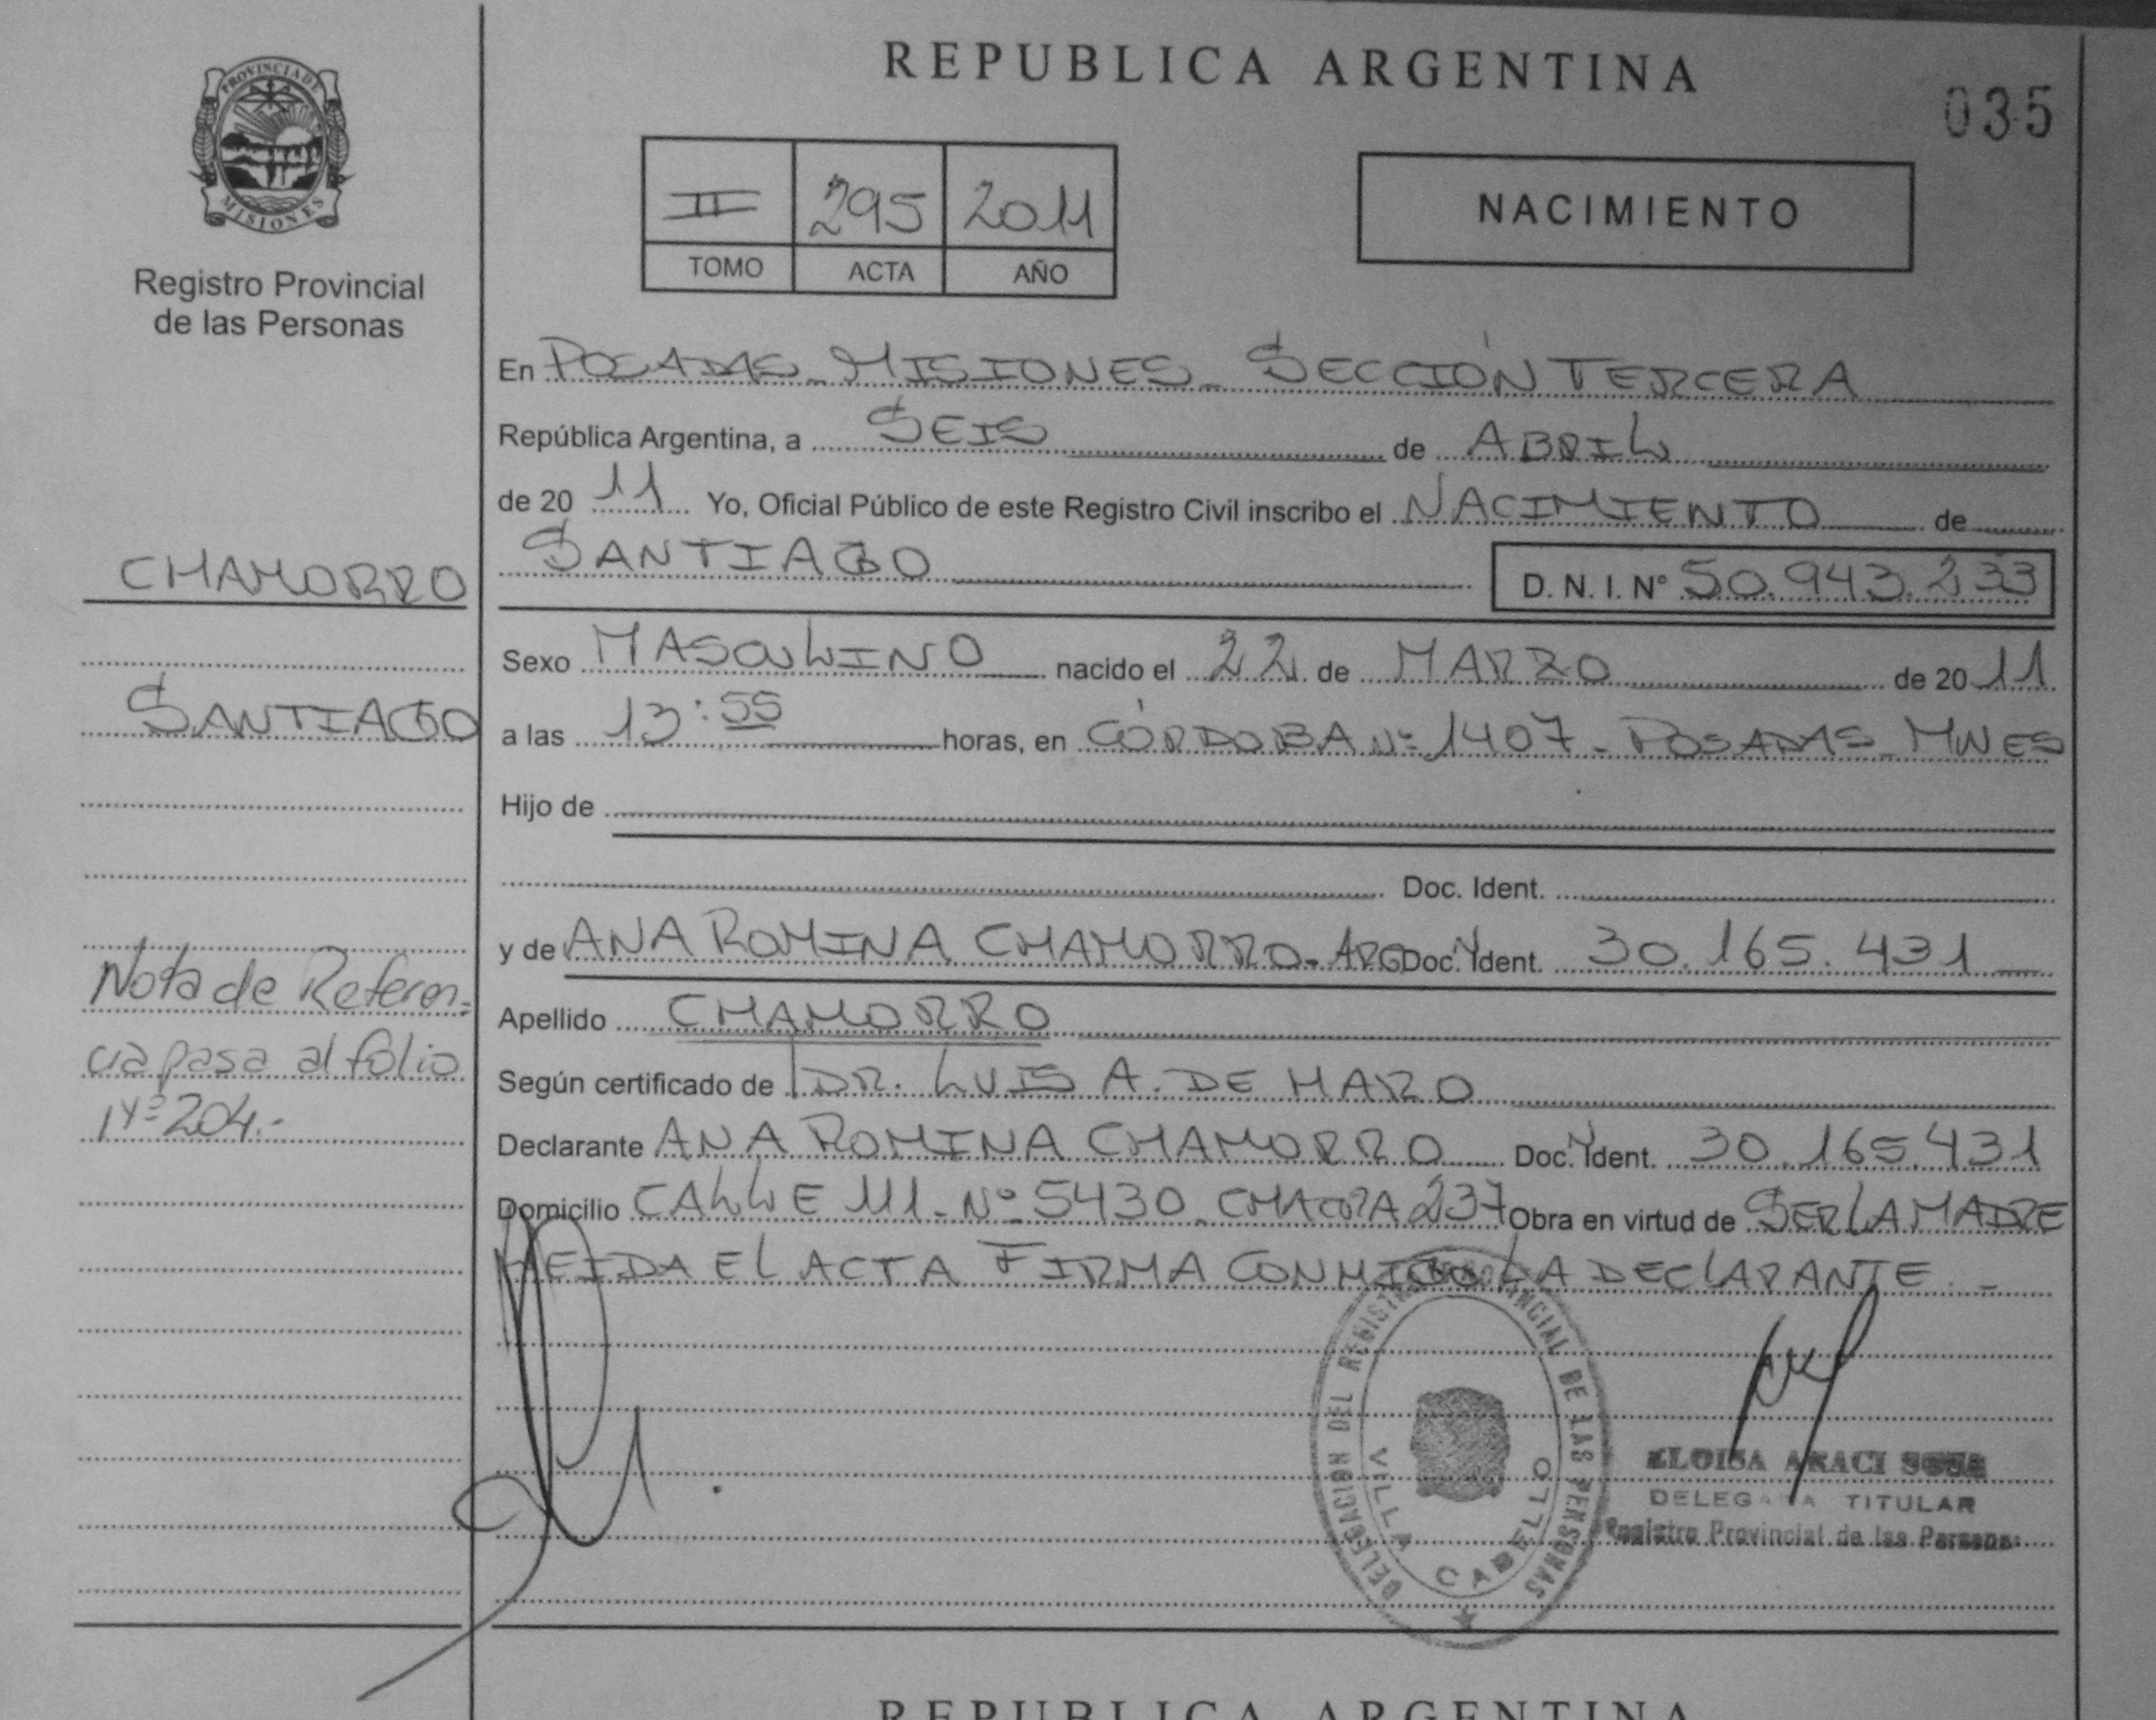 REPUBLICA ARGENTINA
035
PROVINCIA DE
MISIONES
Registro Provincial
de las Personas
II 295 2011
TOMO ACTA AÑO
NACIMIENTO
En POSADAS - MISIONES - SECCIÓN TERCERA
República Argentina, a SEIS de ABRIL
de 20 11 Yo, Oficial Público de este Registro Civil inscribo el NACIMIENTO de
SANTIAGO D. N. I. Nº 50.943.233
Sexo MASCULINO nacido el 22 de MARZO de 20 11
a las 13:55 horas, en CÓRDOBA Nº 1407 - POSADAS - MNES
Hijo de
Doc. Ident.
y de ANA ROMINA CHAMORRO - ARG Doc. Ident. 30.165.431
Apellido CHAMORRO
Según certificado de DR. LUIS A. DE HARO
Declarante ANA ROMINA CHAMORRO Doc. Ident. 30.165.431
Domicilio CALLE 111 - Nº 5430 - CHACRA 237 Obra en virtud de SER LA MADRE
LEIDA EL ACTA FIRMA CONMIGO LA DECLARANTE. -
CHAMORRO
SANTIAGO
Nota de Referen-
cia pasa al folio
Nº 204.-
DELEGACION DEL REGISTRO PROVINCIAL DE LAS PERSONAS
VILLA CABELLO
ELOISA ARACI SOSA
DELEGADA TITULAR
Registro Provincial de las Personas
REPUBLICA ARGENTINA